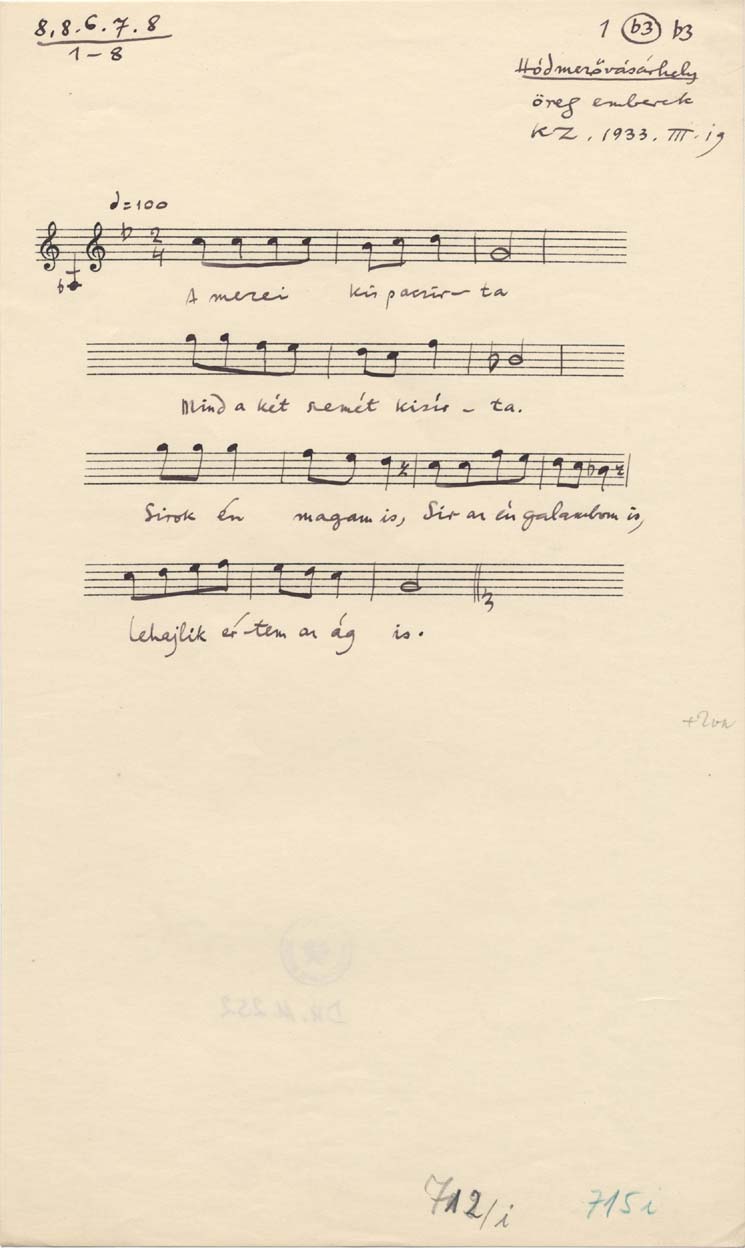 8,8.6.7.8
1-8
1 b3 b3
Hódmezővásárhely
öreg emberek
KZ. 1933. III. ig
=100
2
4
A mezei kis pacsir-ta
Mind a két szemét kisír-ta.
Sirok én magam is, Sir az én galambom is,
Lehajlik ér-tem az ág is.
712/i
715i